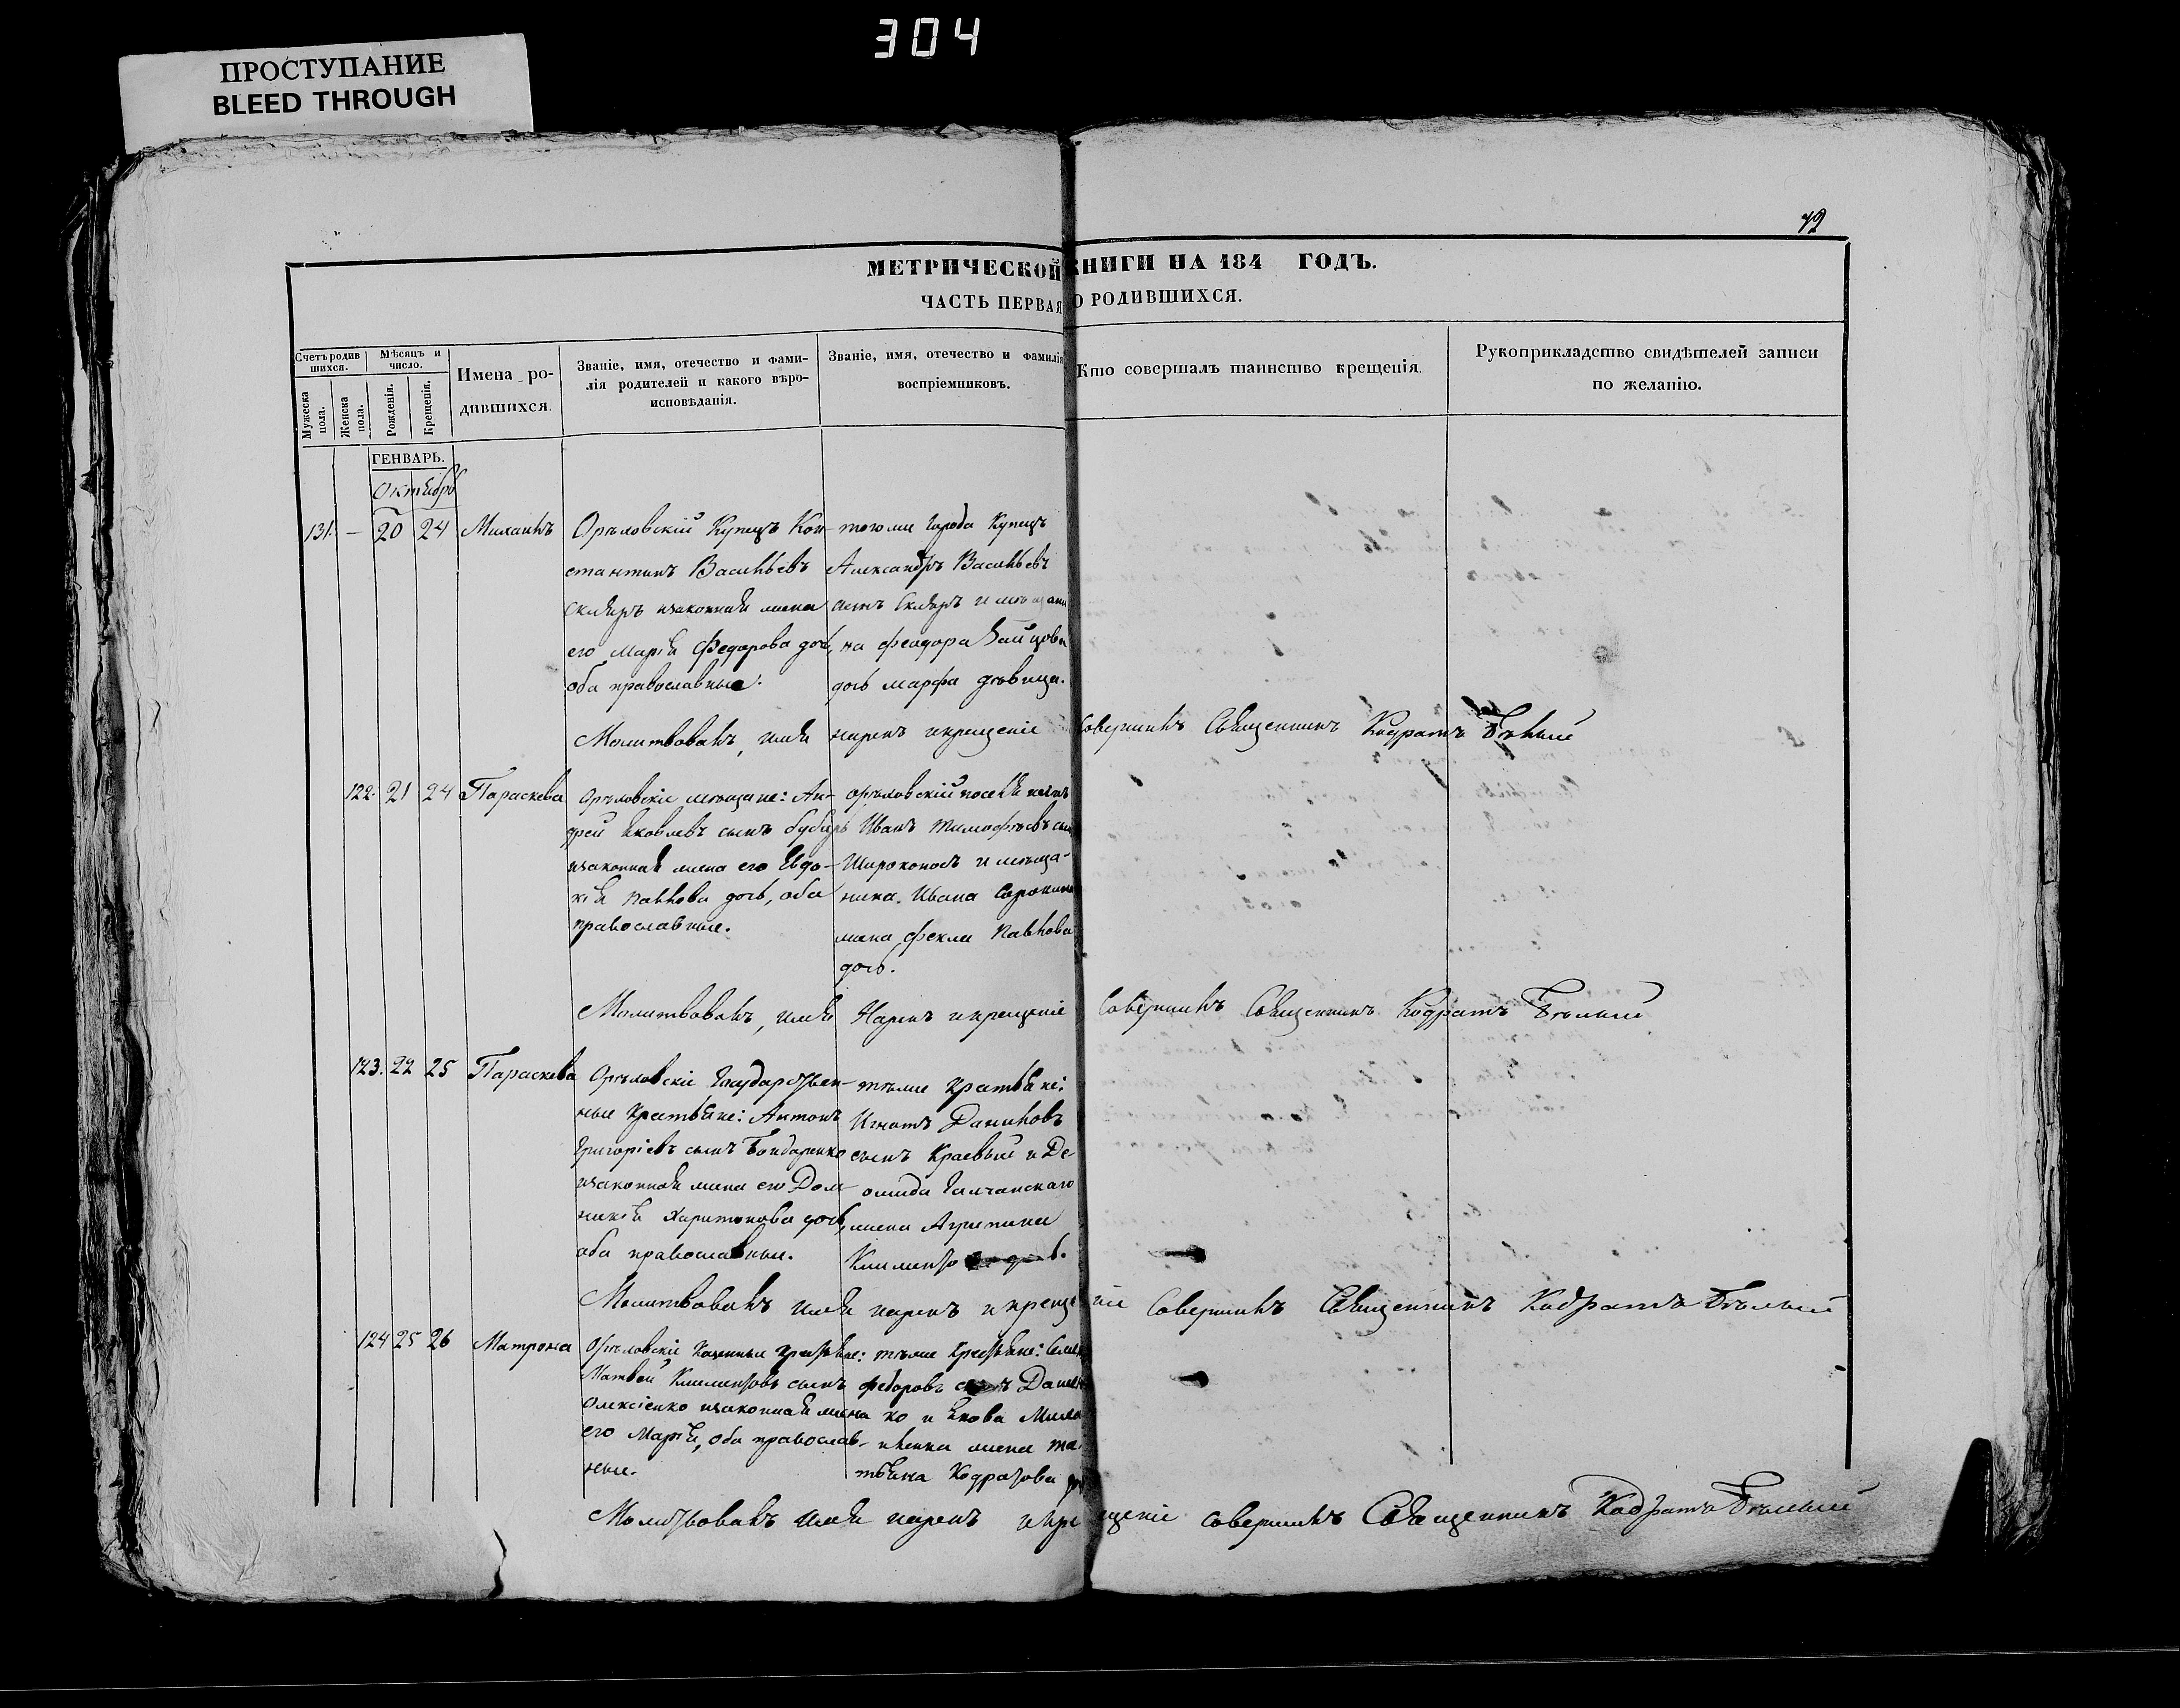 304
ПРОСТУПАНИЕ
BLEED THROUGH
72
МЕТРИЧЕСКОЙ КНИГИ НА 184 ГОДЪ.
ЧАСТЬ ПЕРВАЯ О РОДИВШИХСЯ.
Счетъ родившихся.
Мужеска пола.
Женска пола.
Мѣсяцъ и число.
Рожденія.
Крещенія.
Имена родившихся.
Званіе, имя, отечество и фамилія родителей и какого вѣроисповѣданія.
Званіе, имя, отечество и фамилія воспріемниковъ.
Кто совершалъ таинство крещенія.
Рукоприкладство свидѣтелей записи по желанію.
ГЕНВАРЬ.
Октябрь
131. — 20 24 Михаилъ
Орѣловскій Купецъ Кон-
стантинъ Васильевъ
Скляръ изаконная жена
его Марія Федорова дочь,
оба православные.
тогоже города Купецъ
Александръ Васильевъ
сынъ Скляръ и мѣщани
на Феодора Зайцова
дочь Марфа дѣвица.
Молитвовалъ, имя нарекъ икрещеніе совершилъ Священникъ Кодратъ Бѣлый
122. 21 24 Параскева
Орѣловскіе мѣщане: Ан-
дрей Яковлевъ сынъ
изаконная жена его Евдо-
кія Павлова дочь, оба
православные.
Орѣловскій поселянинъ
Иванъ Тимофѣевъ сын
Широконосъ и мѣща-
нина Ивана Сорокина
жена Фекла Павлова
дочь.
Молитвовалъ, имя Нарекъ икрещеніе совершилъ Священникъ Кодратъ Бѣлый
123. 22 25 Параскева
Орѣловскіе Государствен-
ные крестьяне: Антонъ
Григоріевъ сынъ Бондаренко
изаконная жена его Дом-
никія Харитонова дочь,
оба православные.
тѣже крестьяне:
Игнатъ Даниловъ
сынъ Краевый и Де-
омида Галчанскаго
жена Агрипина
Климент
Молитвовалъ имя нарекъ и крещеніе Совершилъ Священникъ Кодратъ Бѣлый
124 25 26 Матрона
Орѣловскіе Казенные крестьяне:
Матвей Климентовъ сынъ
Олексіенко изаконная жена
его Марія, оба православ-
ные.
тѣже крестьяне: Семен
Федоровъ сынъ Данилен
ко и Якова
жена Та-
тьяна Кодратова
Молитвовалъ имя нарекъ икрещеніе совершилъ Священникъ Кодратъ Бѣлый